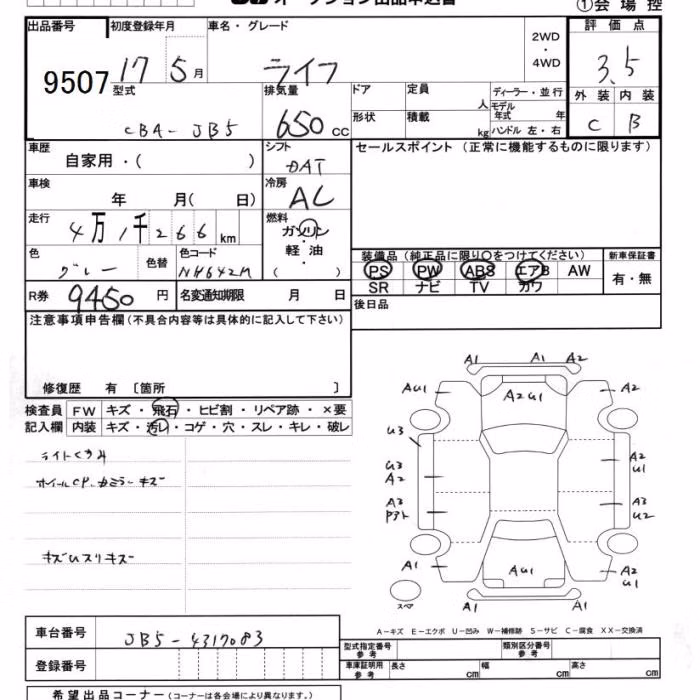 オークション出品申込書 ①会場控
出品番号 初度登録年月 車名・グレード 2WD・4WD 評価点
9507 17 5月 ライフ 3.5
型式 排気量 ドア 定員 人 ディーラー・並行 外装 内装
CBA-JB5 650 cc 形状 積載 kg モデル年式 年 ハンドル 左・右 C B
車歴 シフト セールスポイント (正常に機能するものに限ります)
自家用・( ) DAT
車検 年 月( 日) 冷房 AC
走行 4万1千266km 燃料 ガソリン・軽油 ( )
色 グレー 色替 色コード NH642M
装備品 (純正品に限り○をつけてください) 新車保証書
PS PW ABS エアB AW 有・無
SR ナビ TV カワ
R券 9450円 名変通知期限 月 日 後日品
注意事項申告欄(不具合内容等は具体的に記入して下さい)
修復歴 有 〔箇所 〕
検査員 FW キズ・飛石・ヒビ割・リペア跡・×要
記入欄 内装 キズ・汚レ・コゲ・穴・スレ・キレ・破レ
ライトくすみ
ホイールCP.カミラーキズ
キズUスリキズ
A1 A1 A2
AU1 A2U1 A2
U3
U3 A2 A2 U1
A3 A3 U2
A1 AU1 A2 U1
スペア A1 A1
A-キズ E-エクボ U-凹み W-補修跡 S-サビ C-腐食 XX-交換済
車台番号 JB5-4317083
登録番号
型式指定番号 参考 類別区分番号 参考
車庫証明用 参考 長さ cm 幅 cm 高さ cm
希望出品コーナー(コーナーは各会場により異なります。)